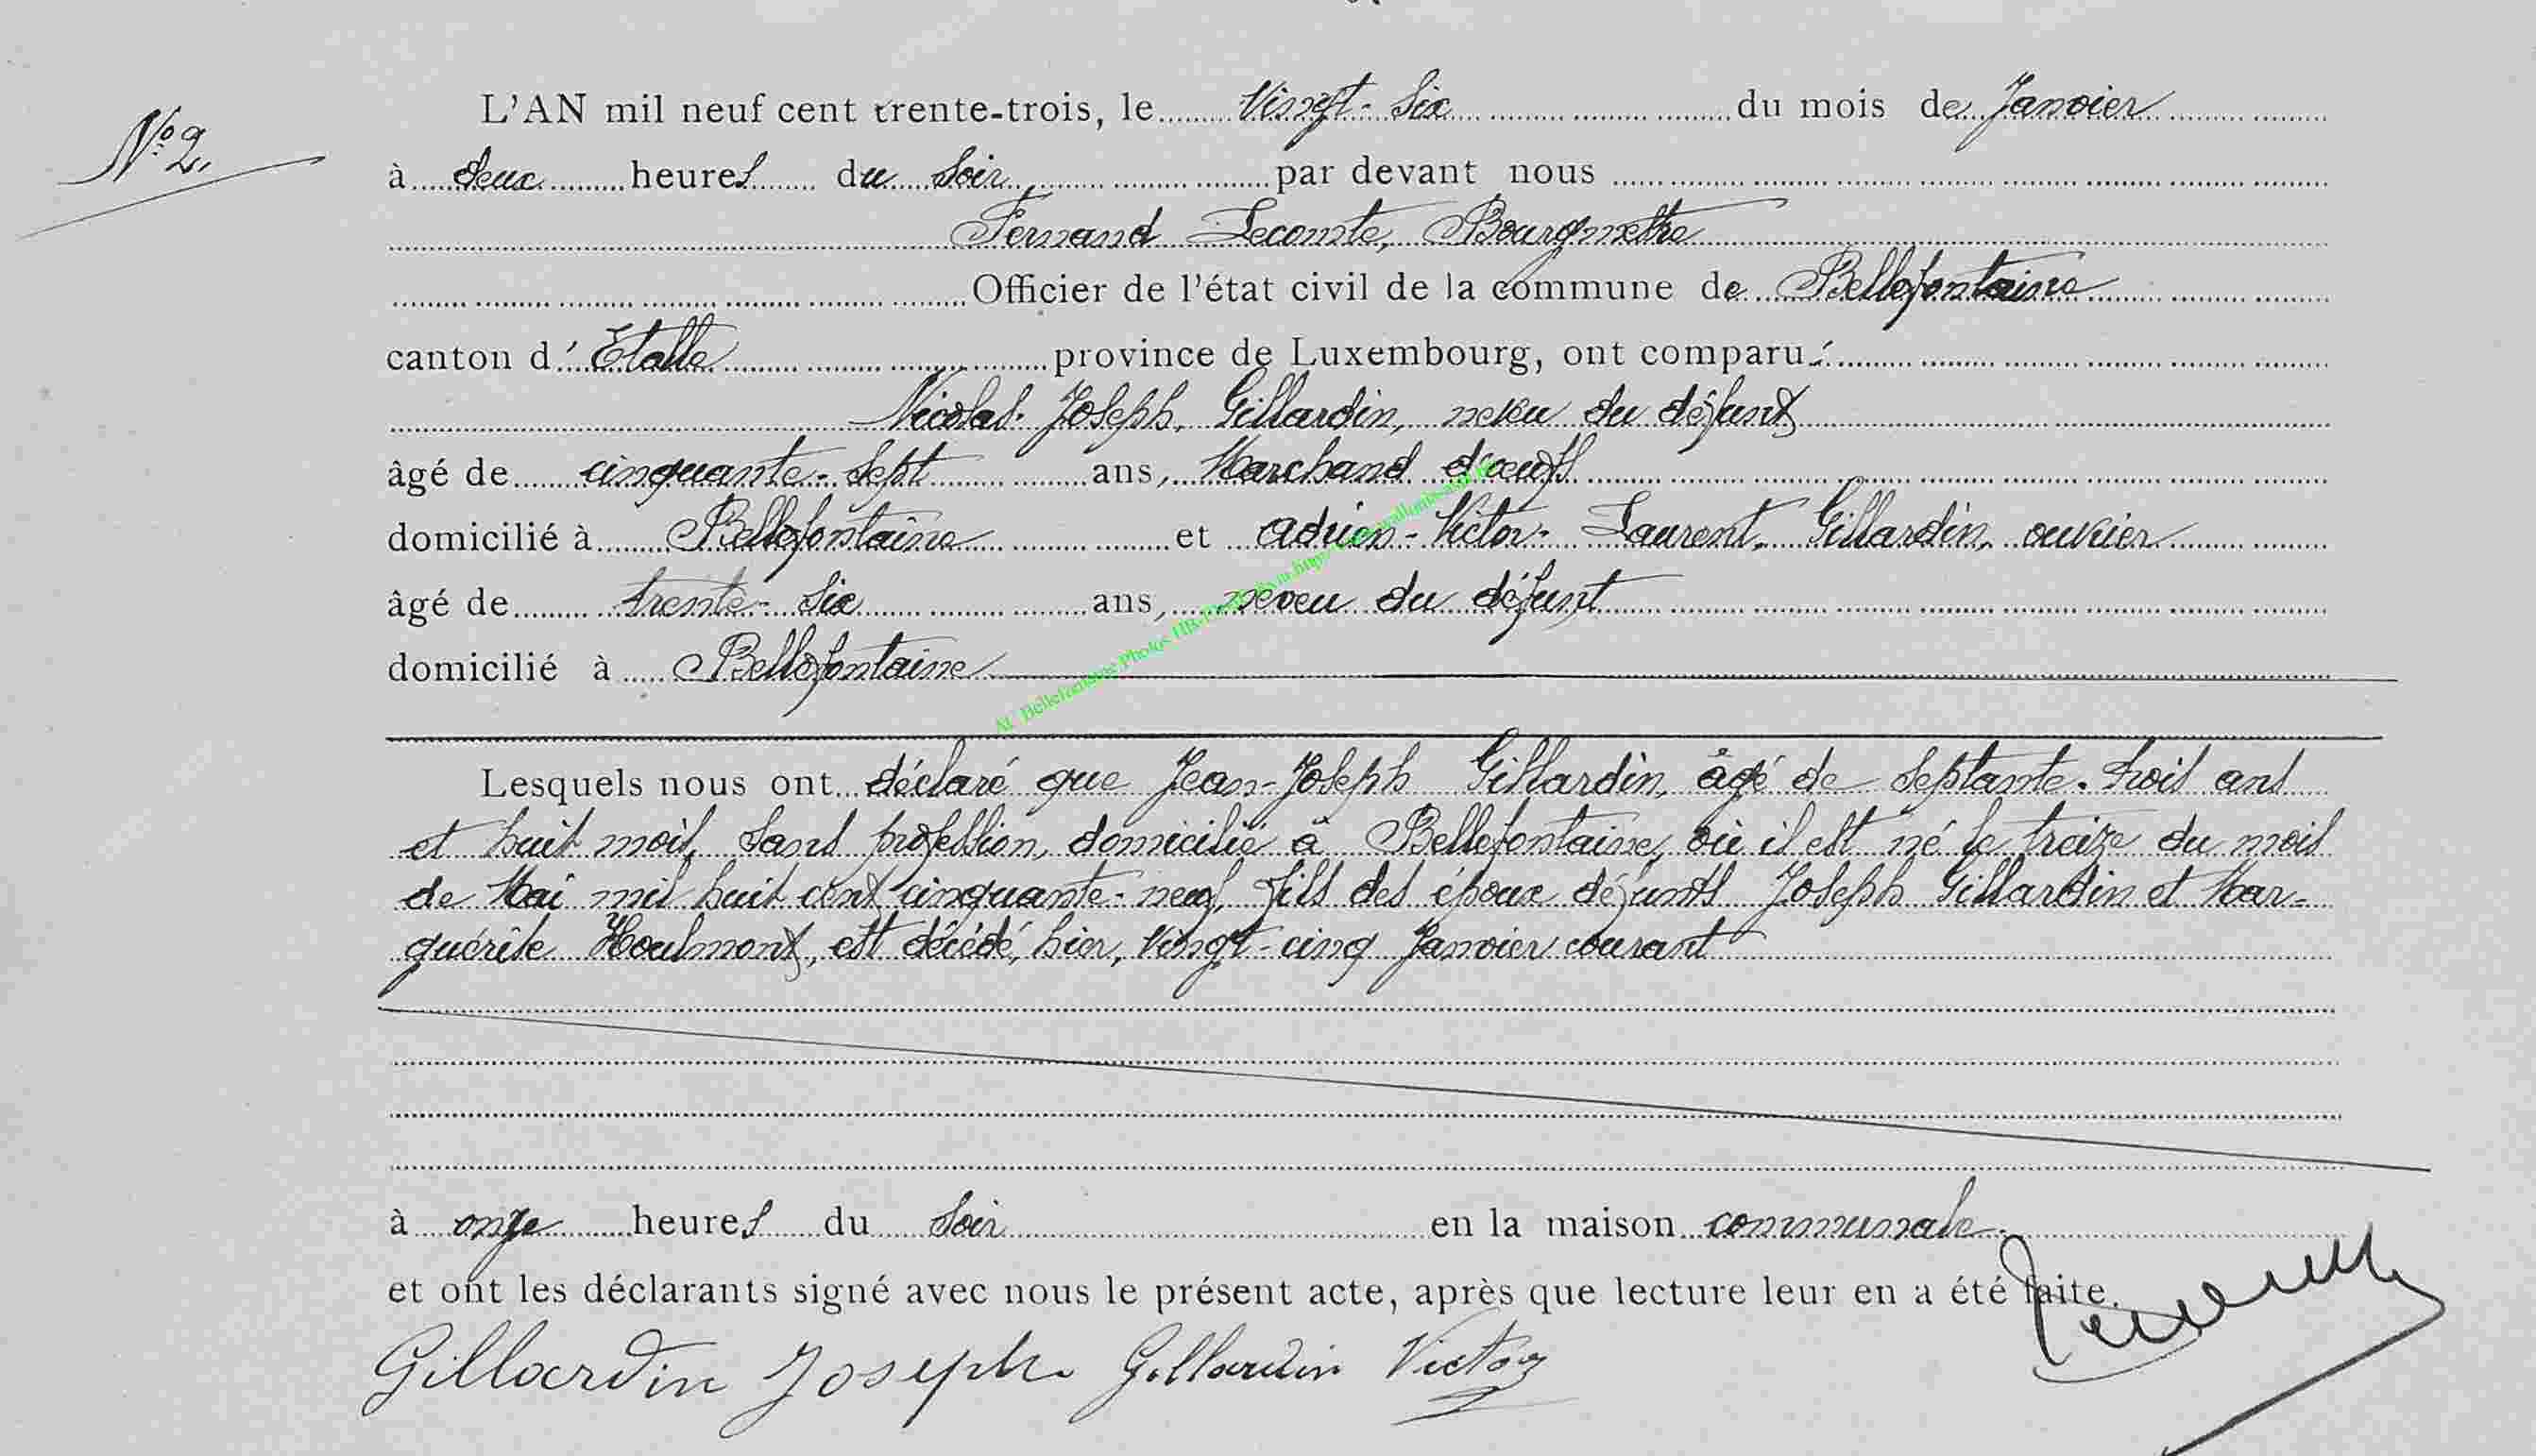 N° 2.
L'AN mil neuf cent trente-trois, le Vingt-six du mois de Janvier
à deux heures du soir, par devant nous
Fernand Lecomte, Bourgmestre
Officier de l'état civil de la commune de Bellefontaine
canton d'Etalle province de Luxembourg, ont comparu :
Nicolas-Joseph, Gillardin, neveu du défunt
âgé de cinquante-sept ans, Marchand d'œufs
domicilié à Bellefontaine et Adrien-Victor-Laurent, Gillardin, ouvrier
âgé de trente-six ans, neveu du défunt
domicilié à Bellefontaine
Lesquels nous ont déclaré que Jean-Joseph Gillardin, âgé de septante-trois ans
et huit mois, sans profession, domicilié à Bellefontaine, où il est né le treize du mois
de Mai mil huit cent cinquante-neuf, fils des époux défunts Joseph Gillardin et Mar-
guérite Houlmont, est décédé, hier, vingt-cinq Janvier courant
à onze heures du soir en la maison communale.
et ont les déclarants signé avec nous le présent acte, après que lecture leur en a été faite.
Gillardin Joseph Gillardin Victor